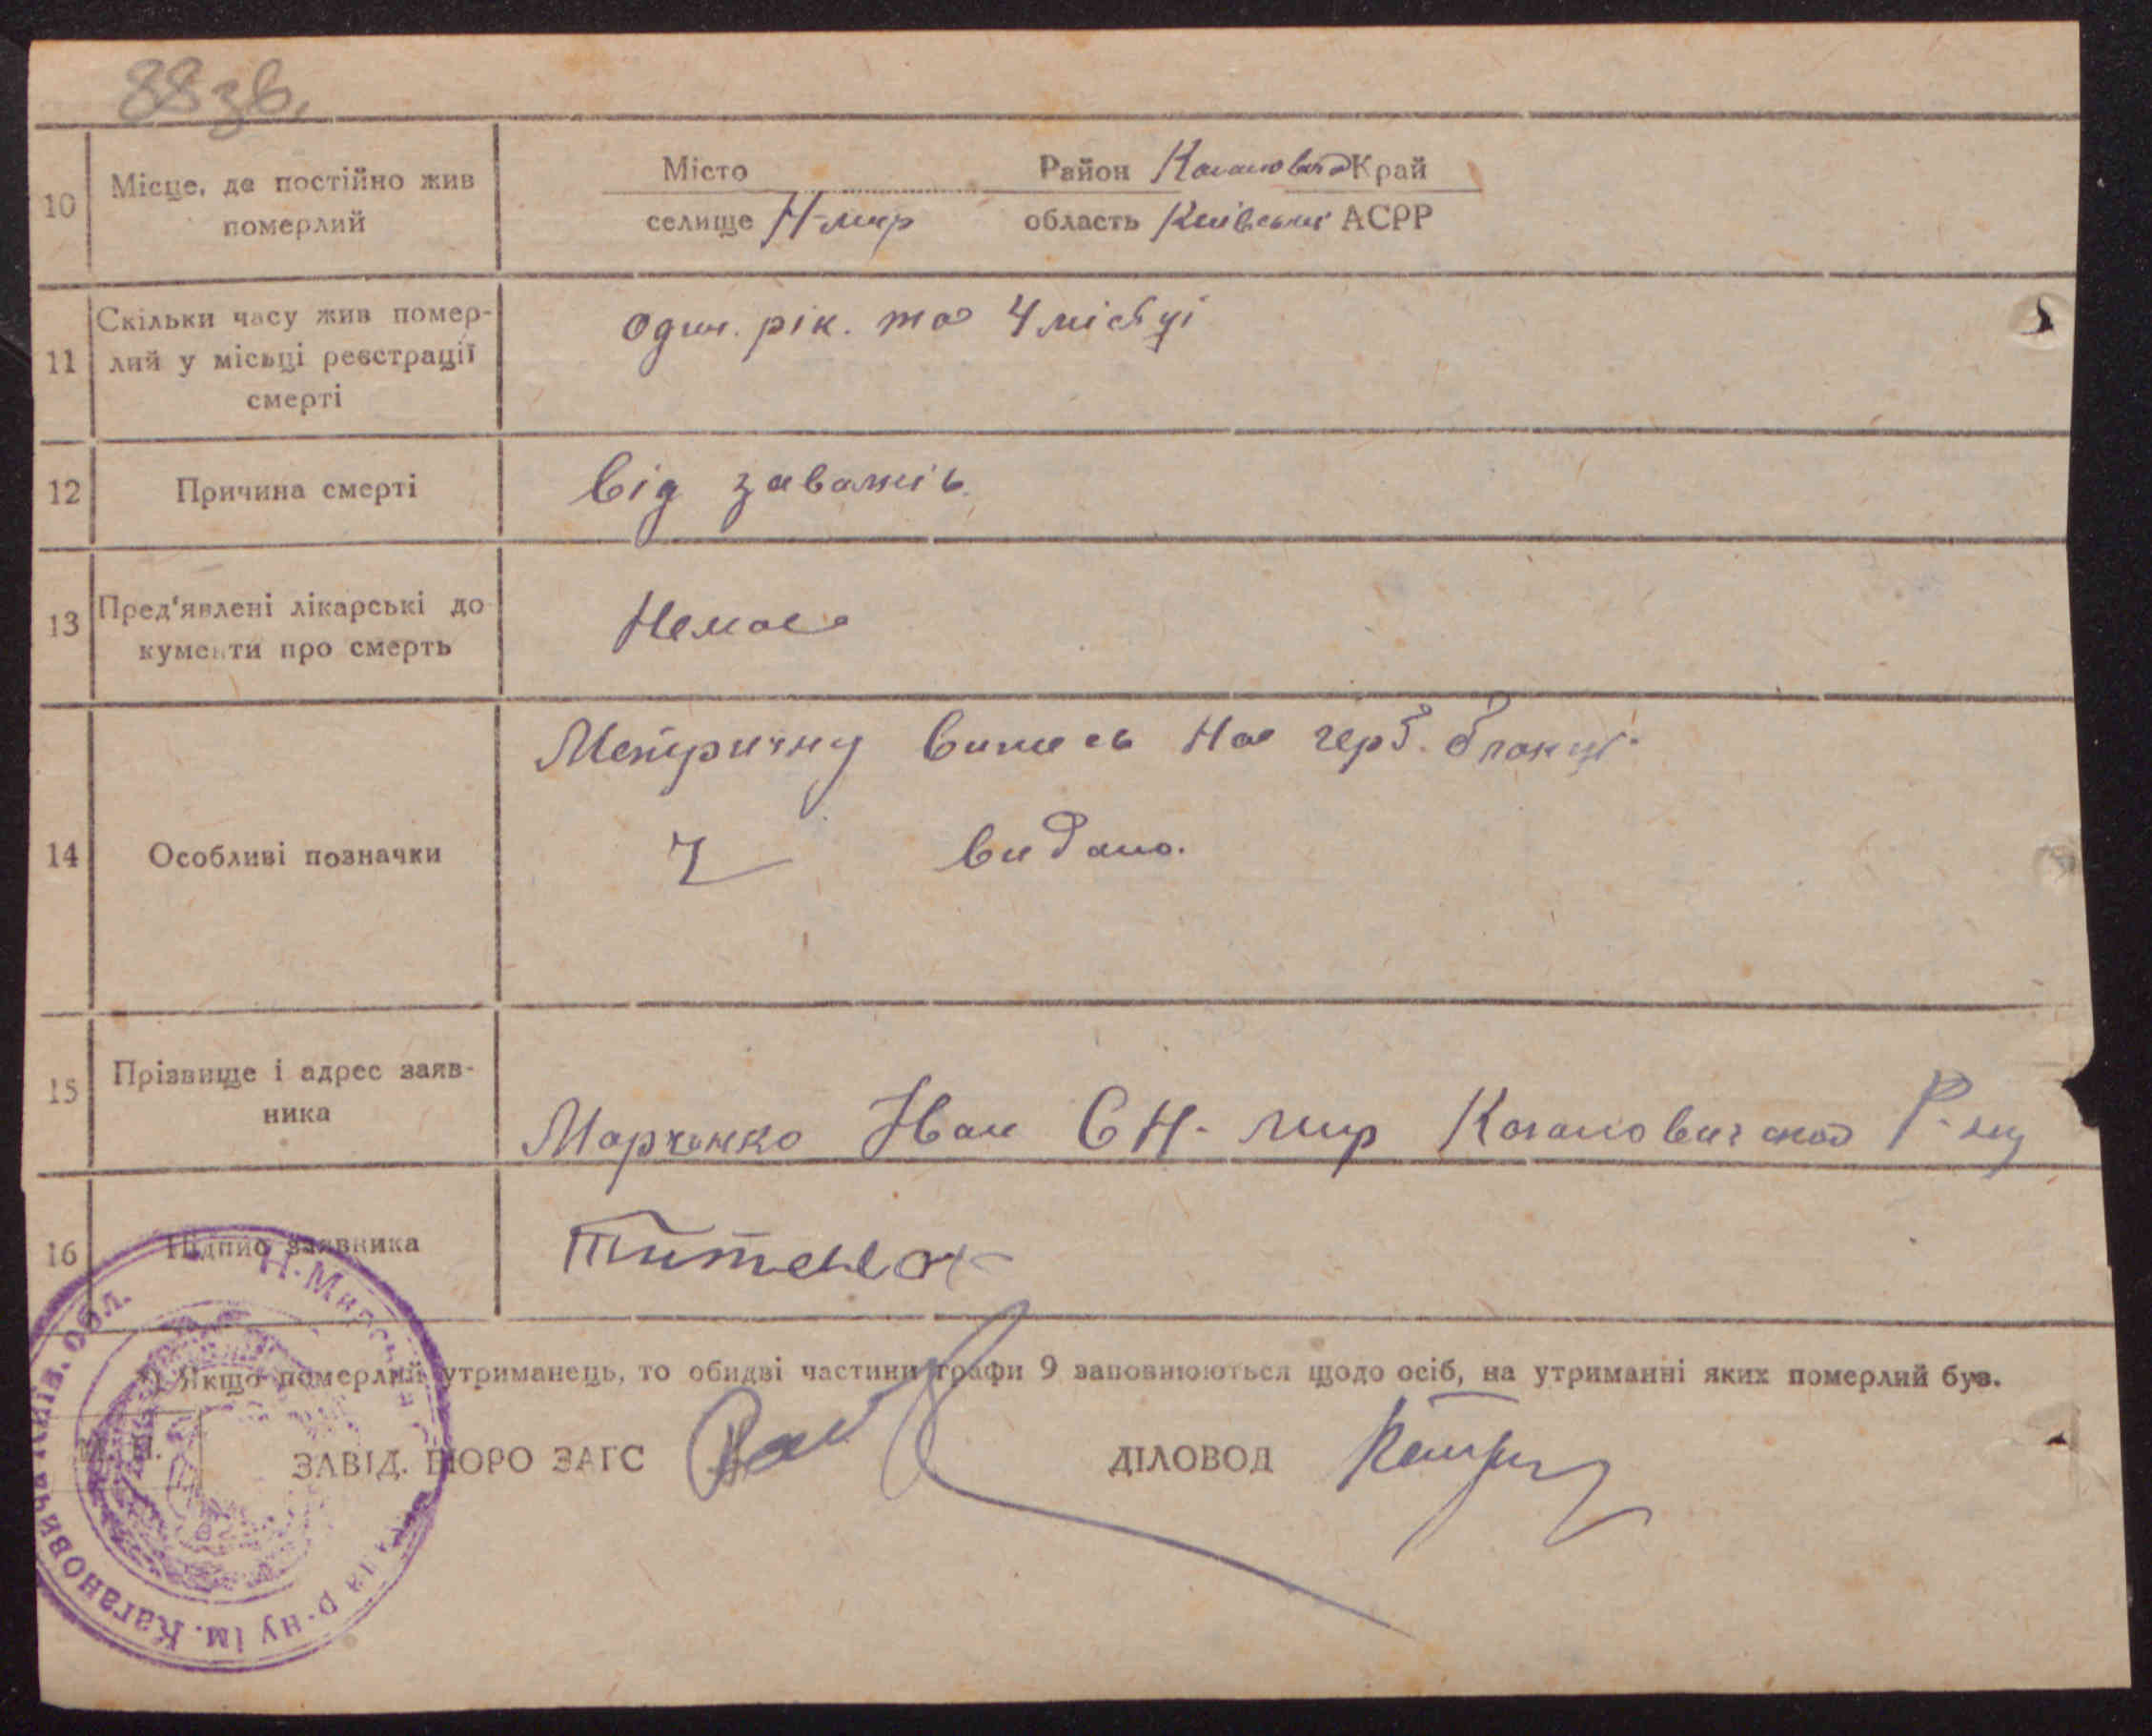 88 зв.
10 Місце, де постійно жив померлий
Місто Район Кагановича Край
селище Н-мир область Київська АСРР
11 Скільки часу жив помер-
лий у місьці реєстрації
смерті
один. рік. та 4 місяці
12 Причина смерті
від
13 Пред'явлені лікарські до
кументи про смерть
Немає
14 Особливі позначки
Метричну випись на герб. бланці
видано.
15 Прізвище і адрес заяв-
ника
Марченко Іван С Н-мир Кагановичского Р-ну
16 Підпис заявника
*) Якщо померлий утриманець, то обидві частини графи 9 заповнюються щодо осіб, на утриманні яких померлий був.
М. П.
ЗАВІД. БЮРО ЗАГС ДІЛОВОД
Н-Мирська р-ну ім. Кагановича Київ. обл.